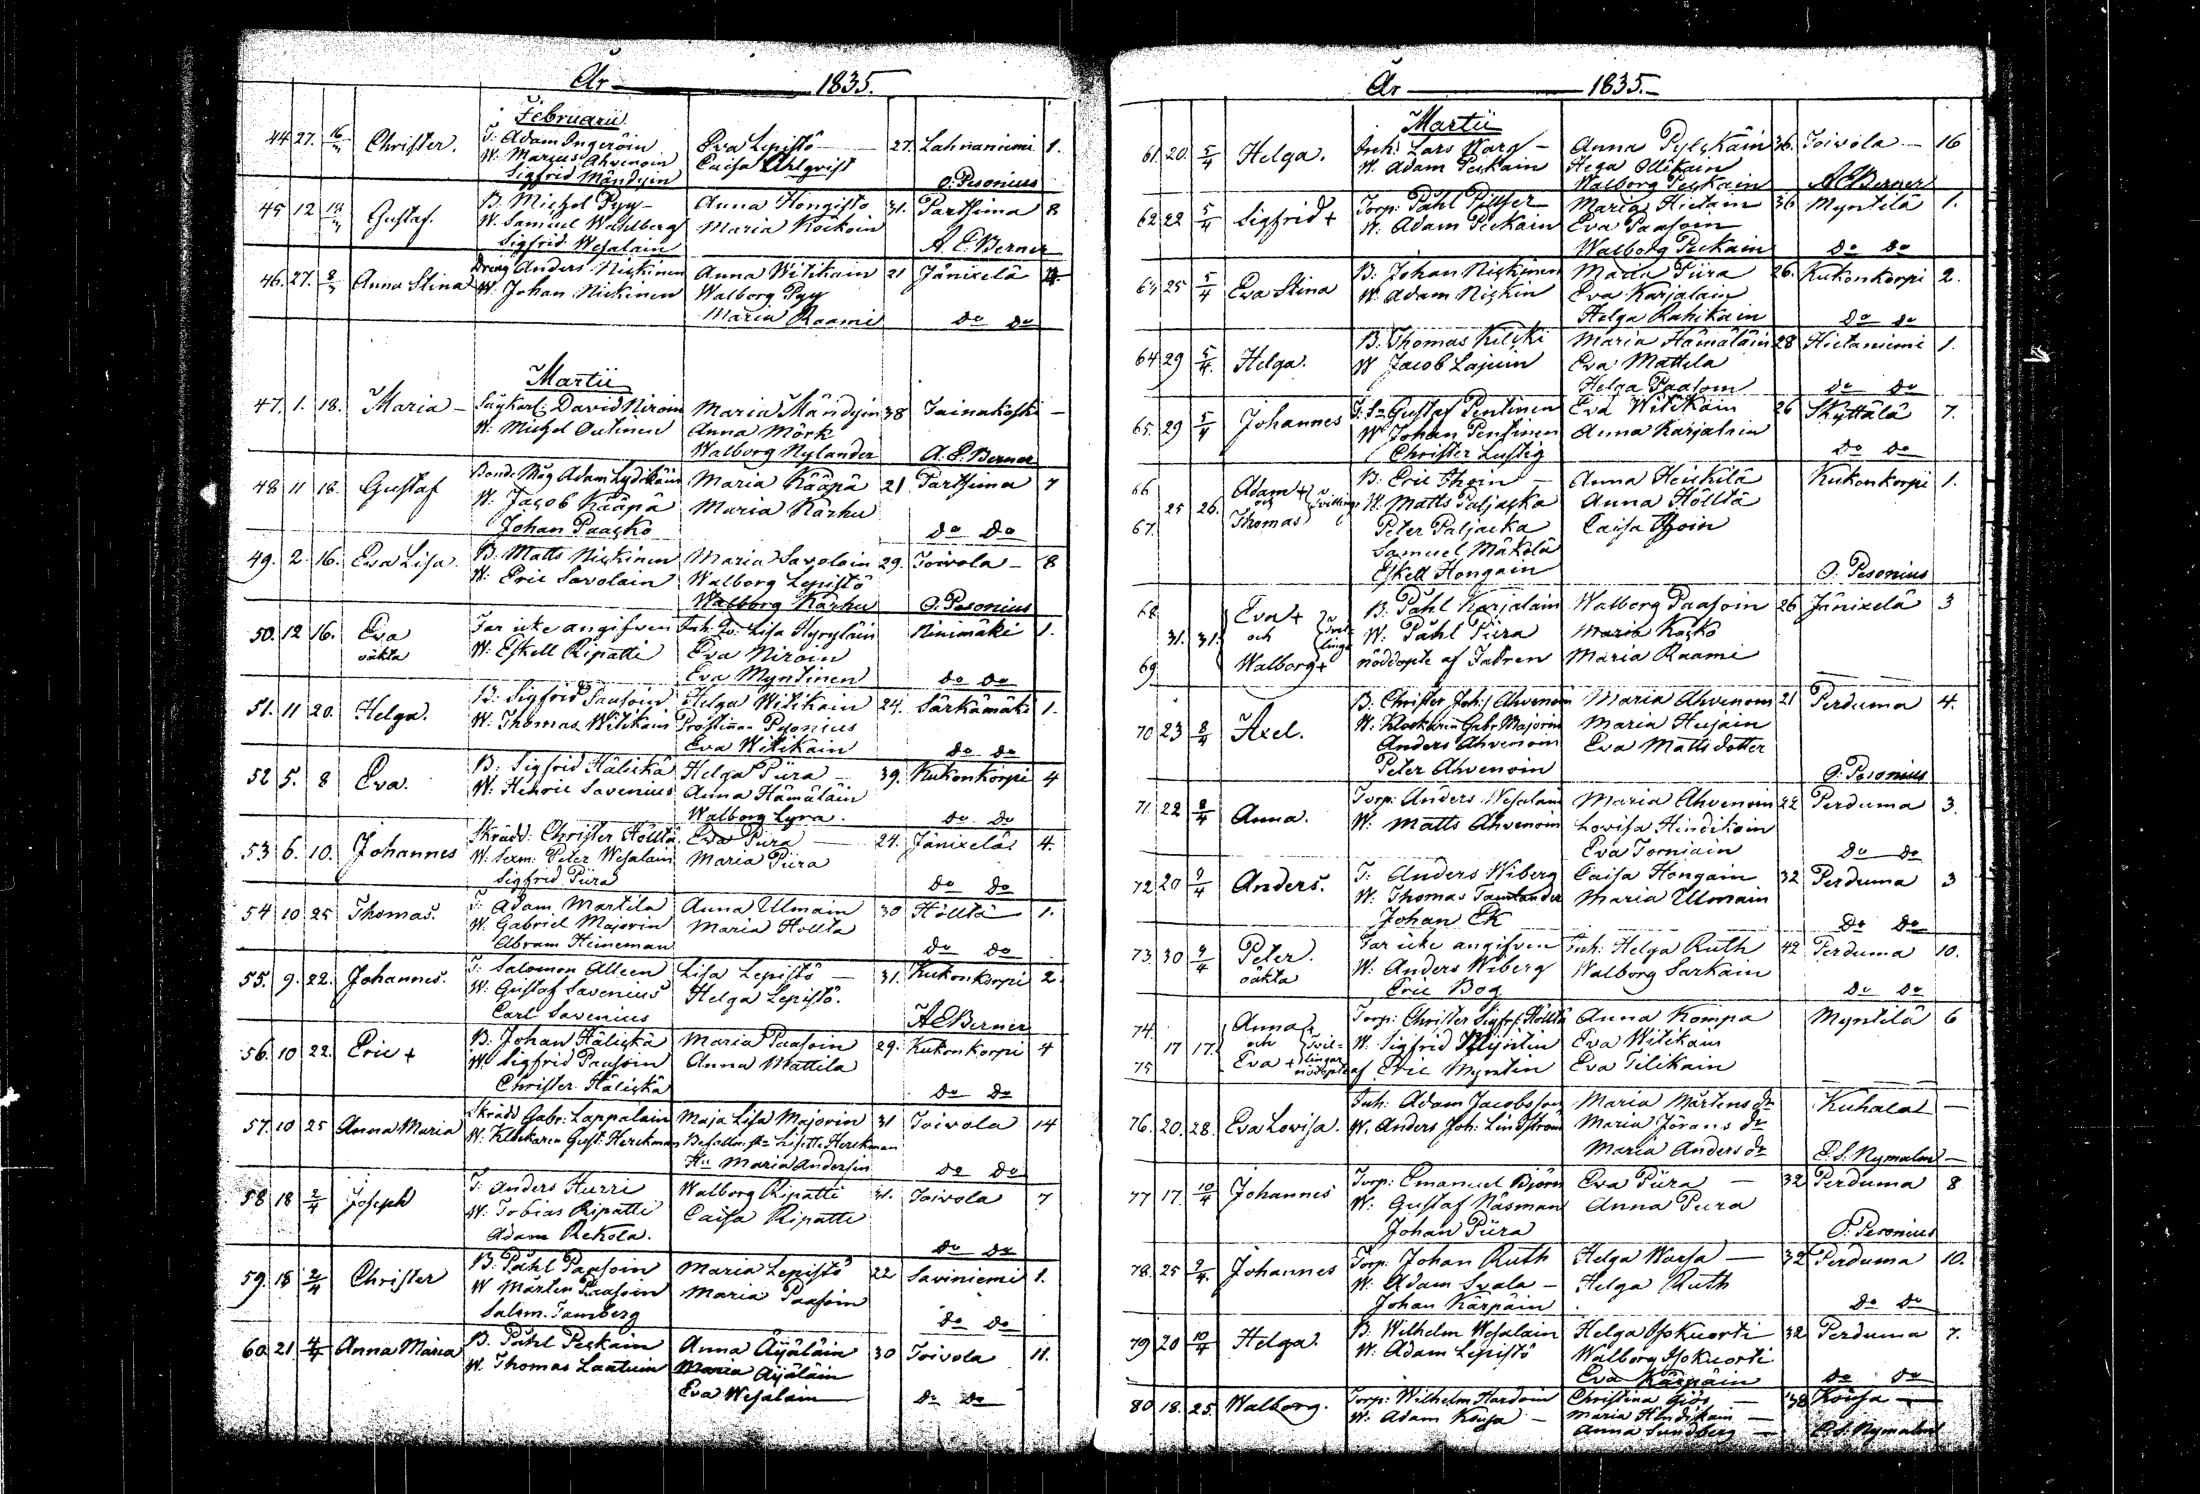 År 1835.
Februarii
44 27. 16/3 Christer. T: Adam Ingeröin Eva Lepistö 27. Lahnaniemi 1.
W. Marcus Ahvenoin Caisa Ahlqvist
Sigfrid Mändyin O: Pesonius
45 12 Gustaf. B. Michel Pyy Anna Hongisto 31. Partsima 8
W. Samuel Wahlberg Maria Köiköin
Sigfrid Wesalain A E. Berner
46. 27. Anna Stina Dreng Anders Niskinen Anna Witikain 21 Jänixelä
W. Johan Niskinen Walborg Pyy
Maria Raami Do Do
Martii
47. 1. 18. Maria Sågkarl: David Niroin Maria Mändyin 38 Juinakoski
W. Michel Outinen Anna Mörk
Walborg Nylander A. E. Berner
48 11 18. Gustaf Bonde Måg Adam Lydikäin Maria Kääpä 21 Partsima 7
W. Jacob Kääpä Maria Karhu
Johan Paasko Do Do
49. 2. 16. Eva Lisa. B. Matts Niskinen Maria Savolain 29. Toivola 8
W: Eric Savolain Walborg Lepistö
Walborg Karhu O. Pesonius
50. 12 16. Eva Far icke angifven Inh: Lisa Hyryläin Ninimäki 1.
oäkta W: Eskell Ripatti Eva Niroin
Eva Myntinen Do Do
51. 11 20. Helga. B. Sigfrid Paasoin Helga Witikain 24. Särkämäki 1.
W. Thomas Witikain Prostinnan Pesonius
Eva Witikäin Do Do
52 5. 8 Eva. B: Sigfrid Häliskä Helga Piira 39. Kukonkorpi 4
W: Henric Savenius Anna Hämäläin
Walborg Lyra. Do Do
53 6. 10. Johannes Skrädd: Christer Höllta Eva Piira 24. Jänixelä 4.
W. Sexm: Peter Wesalain Maria Piira
Sigfrid Piira Do Do
54 10 25 Thomas. T: Adam Martila Anna Ulmain 30 Hölltä 1.
W. Gabriel Majorin Maria Hollta
Abram Heineman Do Do
55. 9. 22. Johannes. T: Salomon Alleen Lisa Lepistö 31. Kukonkorpi 2.
W: Gustaf Savenius Helga Lepistö.
Carl Savenius A E Berner
56. 10 22. Eric + B. Johan Häliskä Maria Paasoin 29. Kukonkorpi 4
W. Sigfrid Paasoin Anna Mattila
Christer Häliskä Do Do
57. 10 25 Anna Maria Skrädd Gabr: Lappalain Maja Lisa Majorin 31 Toivola 14
W. Klockaren Gust: Herckman Befallm: Lisette Herckman
Hu Maria Andersin Do Do
58 18 2/4 Joseph T: Anders Hurri Walborg Ripatti 31. Toivola 7
W. Tobias Ripatti Caisa Ripatti
Adam Rekola. Do Do
59. 18 2/4 Christer B. Påhl Paasoin Maria Lepistö 22 Saviniemi 1.
W Mårten Paasoin Maria Paasoin
Salom. Tamberg Do Do
60. 21 4/4 Anna Maria B. Påhl Peskain Anna Äijäläin 30 Toivola 11.
W. Thomas Laatuin Maria Äijäläin
Eva Wesalain Do Do
År 1835.
Martii
61. 20. 5/4 Helga. Inh: Lars Warg Anna Pylckäin 36. Toivola 16
W. Adam Peskain Hega Ollikain
Walborg Peskain A E Berner
62 22 5/4 Sigfrid + Torp: Påhl Maria Hietain 36 Myntilä 1.
W. Adam Peskain Eva Paasoin
Walborg Peskain Do Do
63. 25 5/4 Eva Stina B: Johan Niskinen Maria Piira 26. Kukonkorpi 2.
W. Adam Niskin Eva Karjalain
Helga Rahikain Do Do
64 29 5/4. Helga. B. Thomas Kilski Maria Hämäläin 28 Hietaniemi 1.
W Jacob Lajuin Eva Mattila
Helga Paasoin Do Do
65. 29 5/4 Johannes T: Sn Gustaf Pentinen Eva Witikain 26 Skyttälä 7.
W Johan Pentinen Anna Karjalain
Christer Lustig Do Do
66 Adam + B. Eric Anna Heickilä Kukonkorpi 1.
25 26. och Tvillingar W. Matts Paljacka Anna Hölltä
67. Thomas Peter Paljacka Caisa
Samuel Mäkölä
Eskell Hongain O. Pesonius
68. Eva + B. Påhl Karjalain Walborg Paasoin 26 Jänixelä 3
31. 31. och W. Påhl Piira Maria Kosko
69 Walborg + nöddöpte af Fadren Maria Raami
70 23 8/4 Axel. B. Christer Joh:s Ahvenoin Maria Ahvenoin 21 Perduma 4.
W. Klockaren Gabr. Majorin Maria Husain
Anders Ahvenoin Eva Matts dotter
Peter Ahvenoin O. Pesonius
71. 22 8/4 Anna. Torp: Anders Wesalain Maria Ahvenoin 22 Perduma 3.
W. Matts Ahvenoin Lovisa Hindikain
Eva Torniain Do Do
72 20 9/4 Anders. T: Anders Wiberg Caisa Hongain 32 Perduma 3
W. Thomas Tamlander Maria Ulmain
Johan Ek Do Do
73 30 9/4 Peter. Far icke angifven Inh: Helga Ruth 42 Perduma 10.
oäkta W. Anders Wiberg Walborg Sarkain
Eric Bog Do Do
74. Anna Torp: Christer Sigfr: Hölltä Anna Kompa Myntilä 6
17 17. och Tvillingar W. Sigfrid Myntin Eva Witikain
75 Eva + nöddöpte af Eric Myntin Eva Tilikain
76. 20. 28. Eva Lovisa. Inh: Adam Jacobsson Maria Mårtens dr Kuhalas
W. Anders Joh: Lindström Maria Jörans dr
Maria Anders dr E. S. Nymalm
77 17. 10/4 Johannes Torp: Emanuel Björn Eva Piira 32 Perduma 8
W: Gustaf Näsman Anna Piira
Johan Piira O. Pesonius
78. 25 9/4. Johannes Torp: Johan Ruth Helga Warsa 32 Perduma 10.
W. Adam Svala Helga Ruth
Johan Kärpäin Do Do
79 20 10/4 Helga. B. Wilhelm Wesalain Helga Isokuorti 32 Perduma 7.
W. Adam Lepistö Walborg Isokuorti
Eva Kärpäin Do Do
80 18. 25. Walborg. Torp: Wilhelm Hardoin Christina Giös 38 Kousa
W. Adam Kousa Maria Hindikain
Anna Sundberg E. S. Nymalm